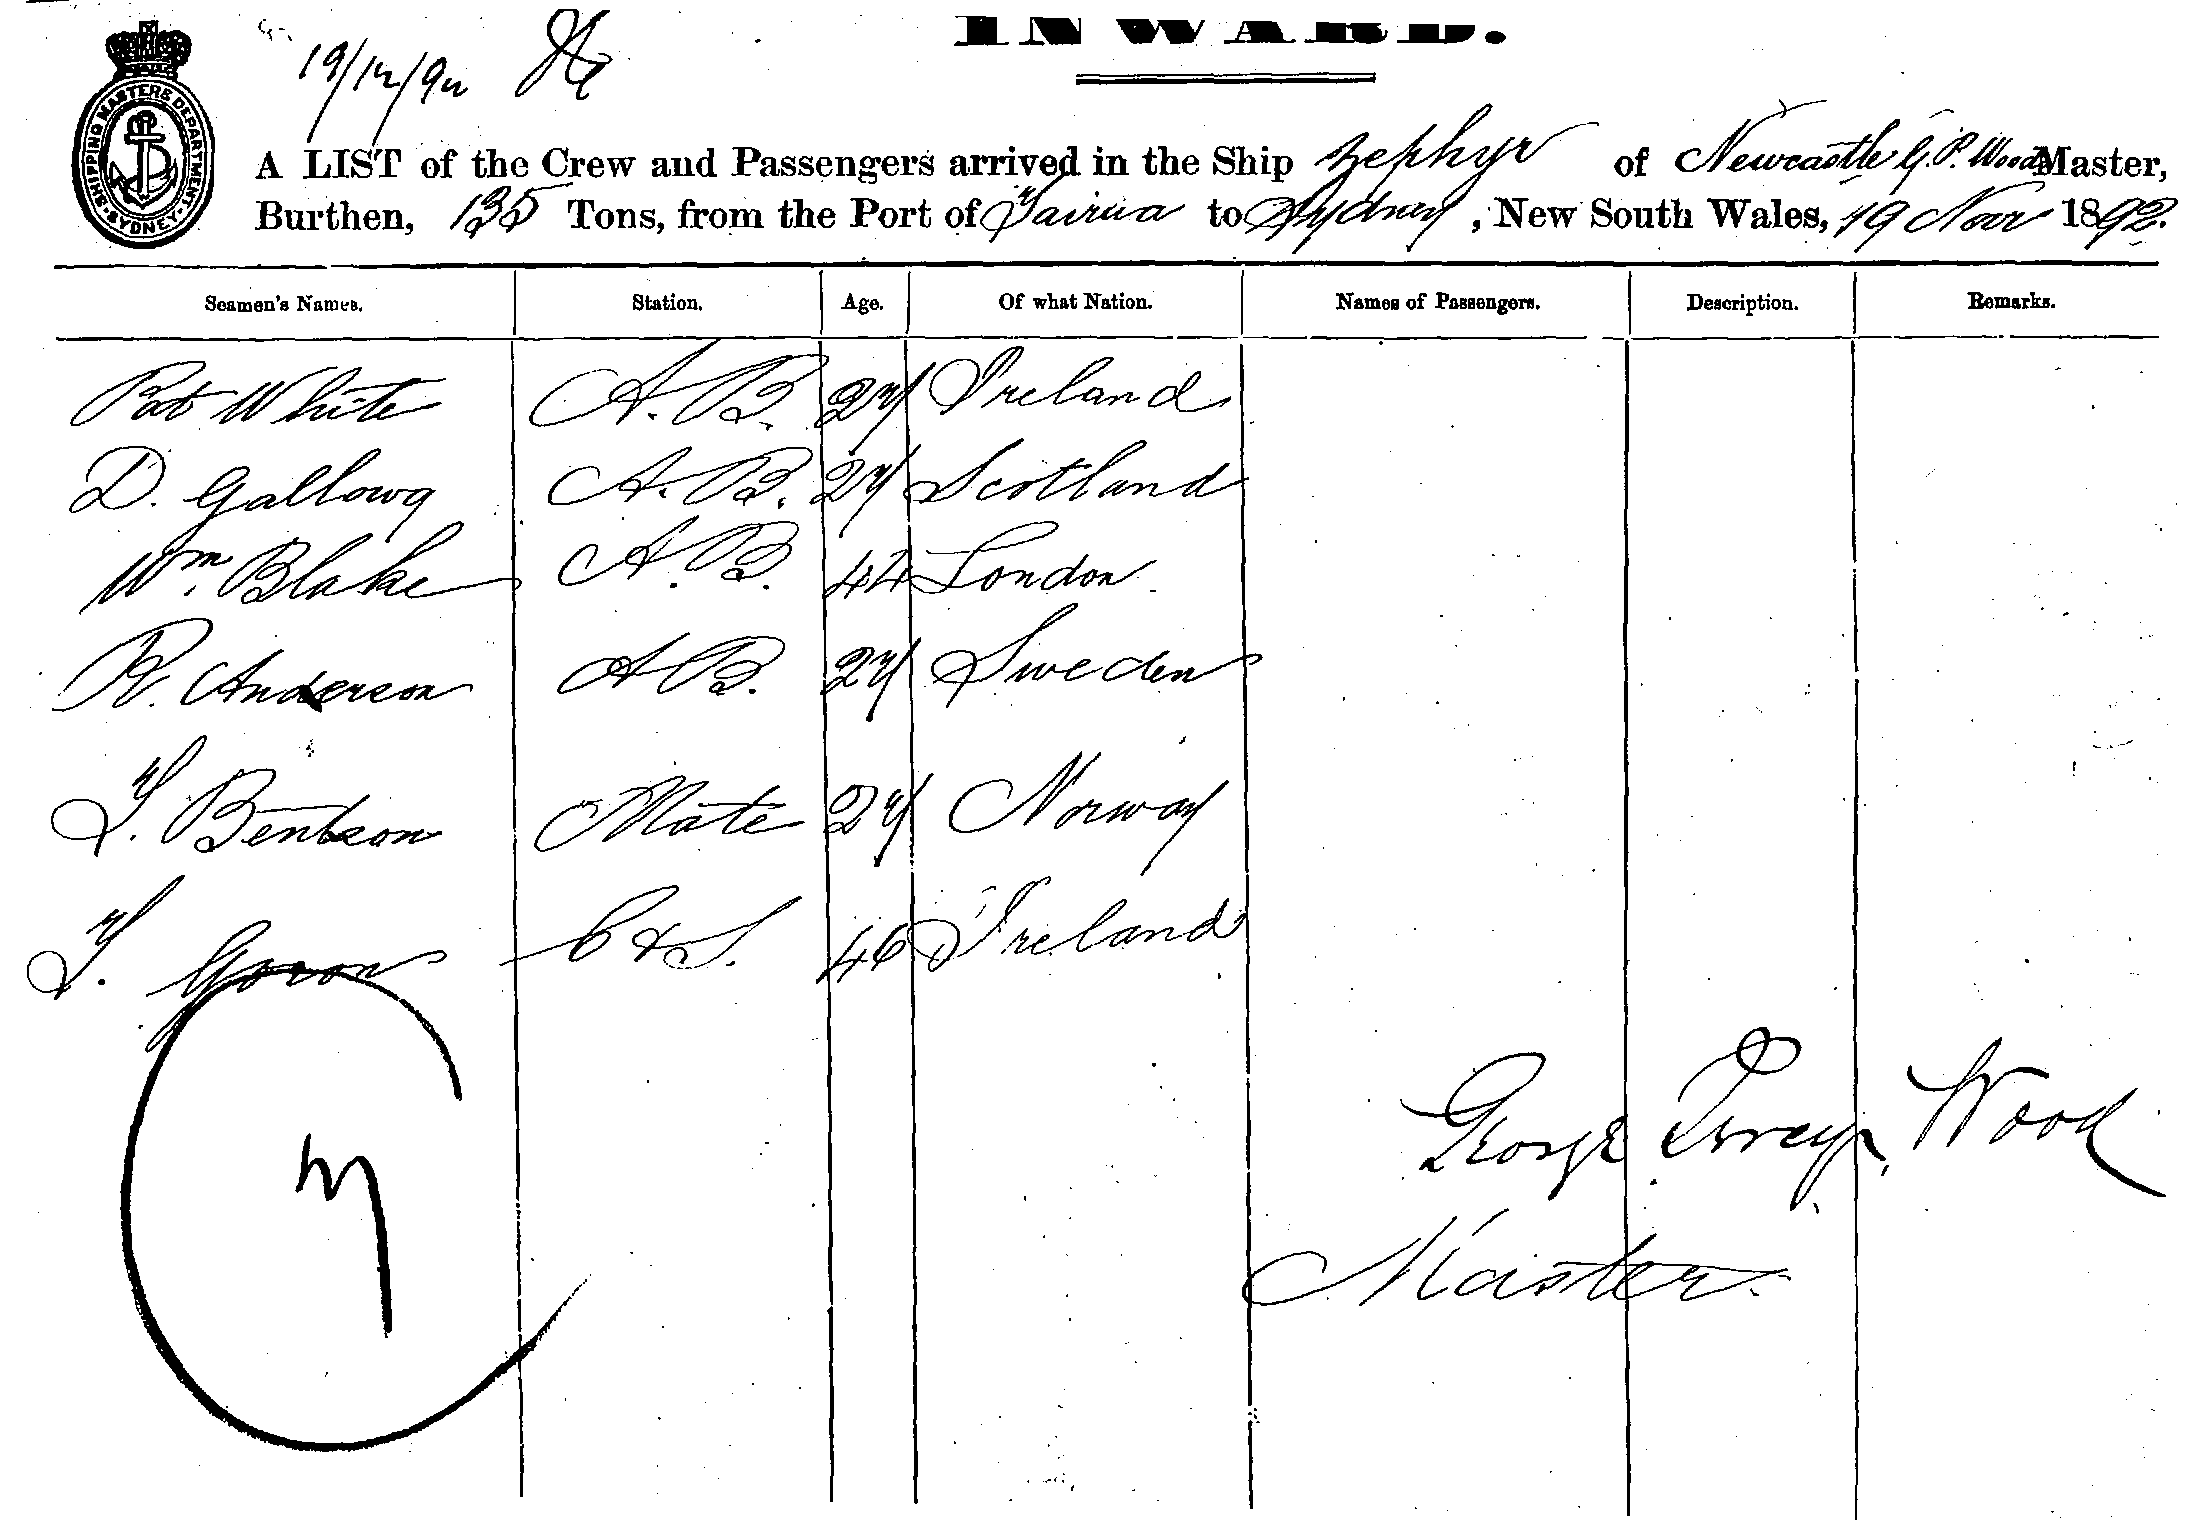 INWARD.
19/12/92
SHIPPING MASTERS DEPARTMENT. SYDNEY.
A LIST of the Crew and Passengers arrived in the Ship Zephyr of Newcastle G. P. Wood Master,
Burthen, 135 Tons, from the Port of Tairua to Sydney, New South Wales, 19 Nov 1892.
Seamen's Names. Station. Age. Of what Nation. Names of Passengers. Description. Remarks.
Pat White A.B. 27 Ireland
D. Gallowa A.B. 27 Scotland
Wm. Blake A.B. 44 London
R. Anderson A.B. 27 Sweden
T. Bentson Mate 27 Norway
T. C & S. 46 Ireland
George Wood
Master.
7